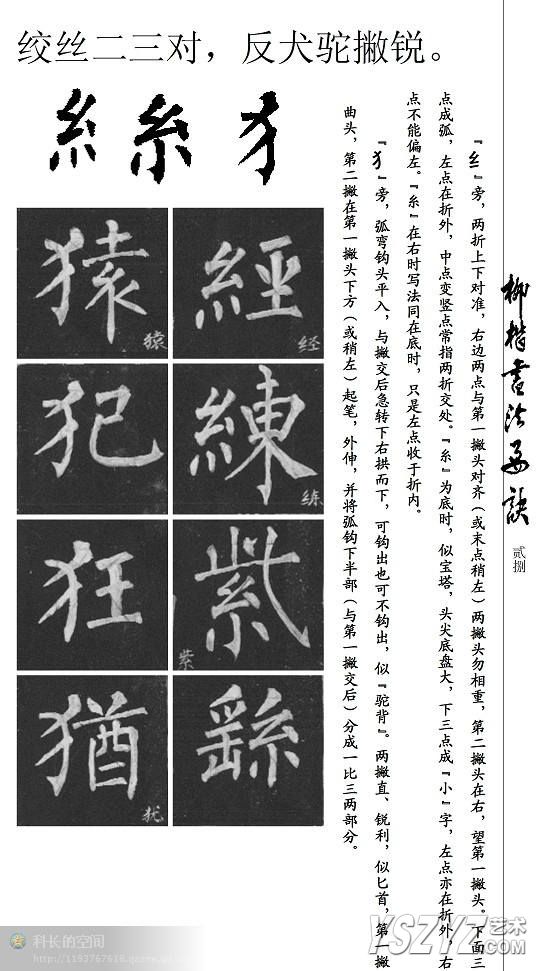 绞丝二三对，反犬驼撇锐。
糹 糸 犭
猿 猿
經 经
犯
練 练
狂
紫 紫
猶 犹
繇
『糹』旁，两折上下对准，右边两点与第一撇头对齐（或末点稍左）两撇头勿相重，第二撇头在右，望第一撇头。下面三
点成弧，左点在折外，中点变竖点常指两折交处。『糸』为底时，似宝塔，头尖底盘大，下三点成『小』字，左点亦在折外，右
点不能偏左。『糸』在右时写法同在底时，只是左点收于折内。
『犭』旁，弧弯钩头平入，与撇交后急转下右拱而下，可钩出也可不钩出，似『驼背』。两撇直、锐利，似匕首，第一撇
曲头，第二撇在第一撇头下方（或稍左）起笔，外伸，并将弧钩下半部（与第一撇交后）分成一比三两部分。
柳楷书法要诀
贰捌
科长的空间
YSZYZ艺术